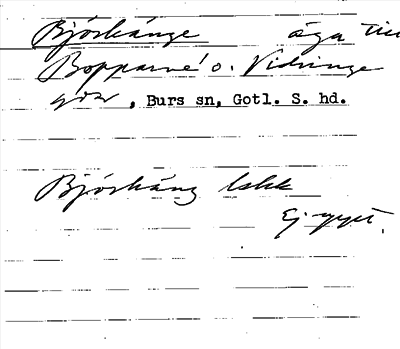 Björkänge äga till
Bopparve o. Vidringe
gdr, Burs sn, Gotl. S. hd.
Björkäng lskk
Ej nytt.